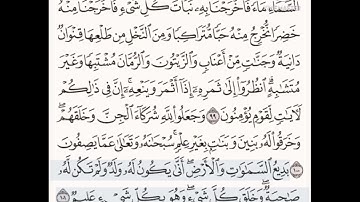 ٱلسَّمَآءِ مَآءً فَأَخْرَجْنَا بِهِۦ نَبَاتَ كُلِّ شَىْءٍ فَأَخْرَجْنَا مِنْهُ
خَضِرًا نُّخْرِجُ مِنْهُ حَبًّا مُّتَرَاكِبًا وَمِنَ ٱلنَّخْلِ مِن طَلْعِهَا قِنْوَانٌ
دَانِيَةٌ وَجَنَّٰتٍ مِّنْ أَعْنَابٍ وَٱلزَّيْتُونَ وَٱلرُّمَّانَ مُشْتَبِهًا وَغَيْرَ
مُتَشَٰبِهٍ ٱنظُرُوٓا۟ إِلَىٰ ثَمَرِهِۦٓ إِذَآ أَثْمَرَ وَيَنْعِهِۦٓ إِنَّ فِى ذَٰلِكُمْ
لَءَايَٰتٍ لِّقَوْمٍ يُؤْمِنُونَ ٩٩ وَجَعَلُوا۟ لِلَّهِ شُرَكَآءَ ٱلْجِنَّ وَخَلَقَهُمْ ۖ
وَخَرَقُوا۟ لَهُۥ بَنِينَ وَبَنَٰتٍۭ بِغَيْرِ عِلْمٍ ۚ سُبْحَٰنَهُۥ وَتَعَٰلَىٰ عَمَّا يَصِفُونَ
١٠٠ بَدِيعُ ٱلسَّمَٰوَٰتِ وَٱلْأَرْضِ ۖ أَنَّىٰ يَكُونُ لَهُۥ وَلَدٌ وَلَمْ تَكُن لَّهُۥ
صَٰحِبَةٌ ۖ وَخَلَقَ كُلَّ شَىْءٍ ۖ وَهُوَ بِكُلِّ شَىْءٍ عَلِيمٌ ١٠١